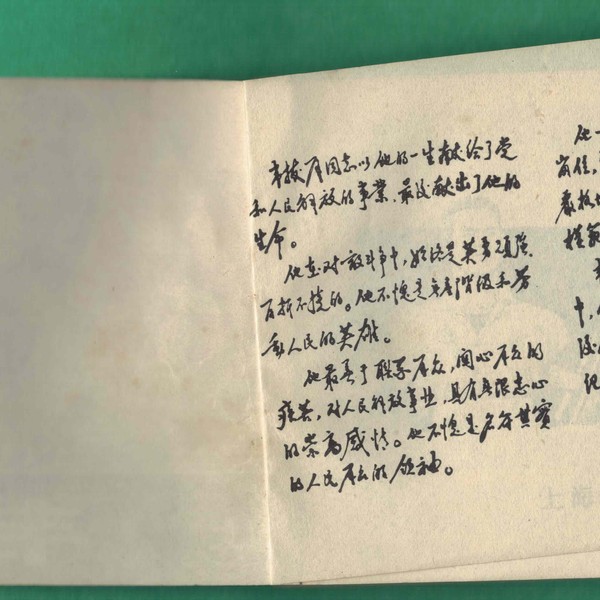 韦拔群同志以他的一生献给了党
和人民解放的事業,最後献出了他的
生命。
他在对敌斗争中,始终是英勇顽强,
百折不挠的。他不愧是无产阶级和劳
动人民的英雄。
他最善于联系群众,关心群众的
疾苦,对人民解放事业,具有无限忠心
的崇高感情。他不愧是名符其实
的人民群众的领袖。
他一
岗位,
严格
模范
中,
上海